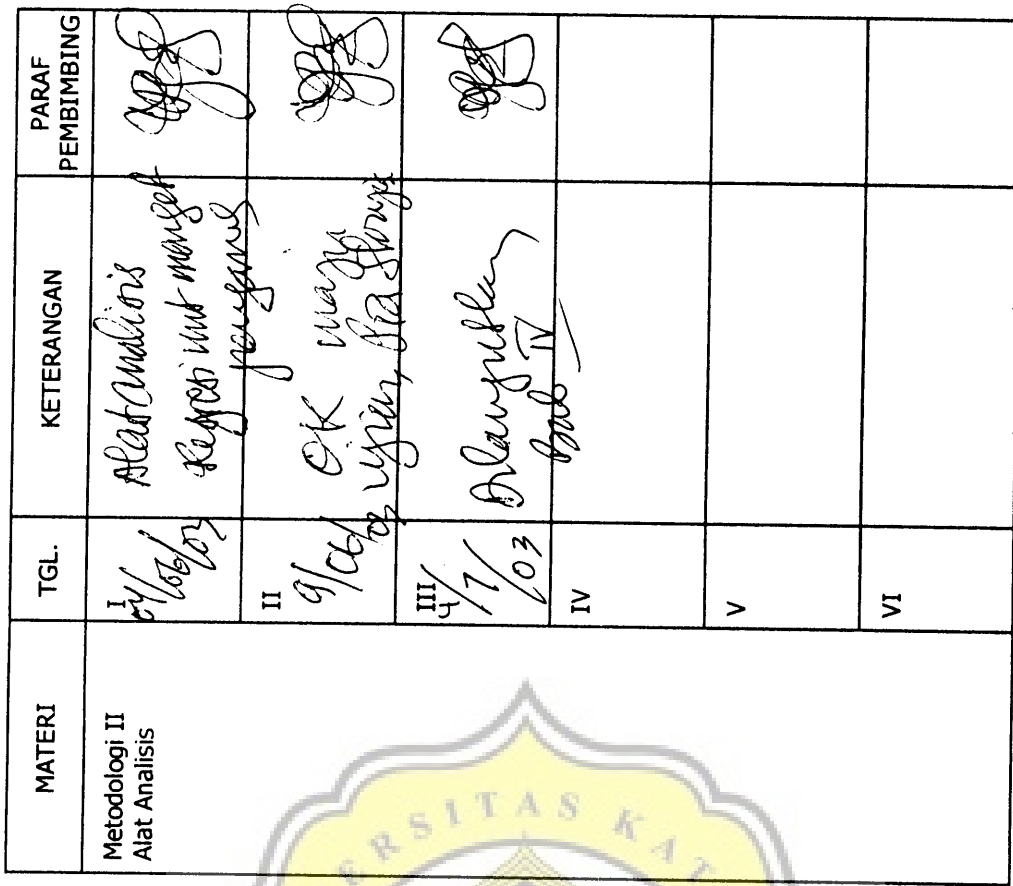 MATERI
TGL.
KETERANGAN
PARAF
PEMBIMBING
Metodologi II
Alat Analisis
I
04/06/03
Alat analisis
Regresi unt
II
9/06/03
OK
III
4/7/03
Dilanjutkan
Bab IV
IV
V
VI
ERSITAS KAT